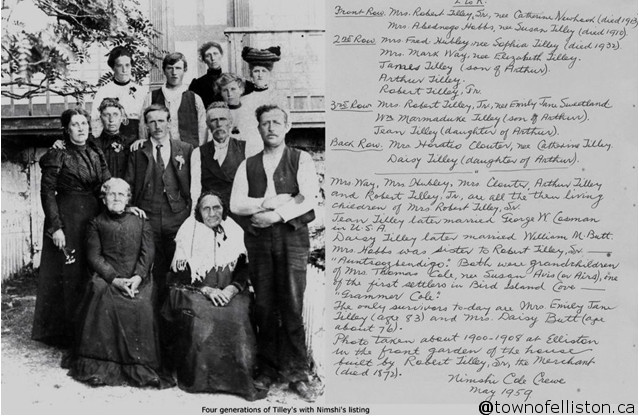 L to R.
Front Row. Mrs. Robert Tilley, Sr, nee Catherine Newhook (died 1913)
Mrs Abednego Hobbs, nee Susan Tilley (died 1910).
2nd Row. Mrs. Fred Hubley, nee Sophia Tilley (died 1932).
Mrs. Mark Way, nee Elizabeth Tilley.
James Tilley (son of Arthur).
Arthur Tilley.
Robert Tilley, Jr.
3rd Row. Mrs. Robert Tilley, Jr, nee Emily Jane Sweetland
Wm Marmaduke Tilley (son of Arthur).
Jean Tilley (daughter of Arthur).
Back Row. Mrs Horatio Clouter, nee Catherine Tilley.
Daisy Tilley (daughter of Arthur).
Mrs Way, Mrs Hubley, Mrs Clouter, Arthur Tilley
and Robert Tilley, Jr, are all the then living
children of Mrs Robert Tilley, Sr
Jean Tilley later married George W Cosman
in U.S.A.
Daisy Tilley later married William M. Butt.
Mrs Hobbs was sister to Robert Tilley, Sr —
"Auntroogbendigo". Both were grandchildren
of Mrs. Thomas Cole, nee Susan Avis (or Airs), one
of the first settlers in Bird Island Cove —
"Grammer Cole".
The only survivors today are Mrs. Emily Jane
Tilley (age 83) and Mrs. Daisy Butt (age
about 76).
Photo taken about 1900-1908 at Elliston
in the front garden of the house
built by Robert Tilley, Sr, the Merchant
(died 1893).
Nimshi Cole Crewe
May 1959
Four generations of Tilley's with Nimshi's listing
@townofelliston.ca